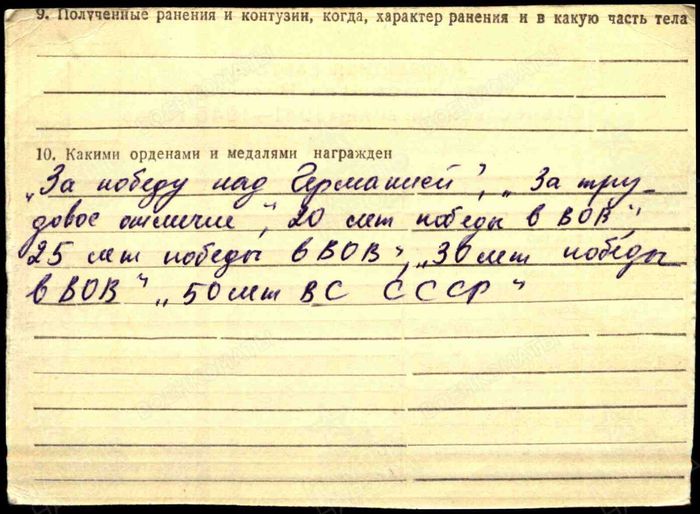 9. Полученные ранения и контузии, когда, характер ранения и в какую часть тела
10. Какими орденами и медалями награжден
„За победу над Германией", „За тру-
довое отличие", 20 лет победы в ВОВ",
25 лет победы в ВОВ", „30 лет победы
в ВОВ" „50 лет ВС СССР"